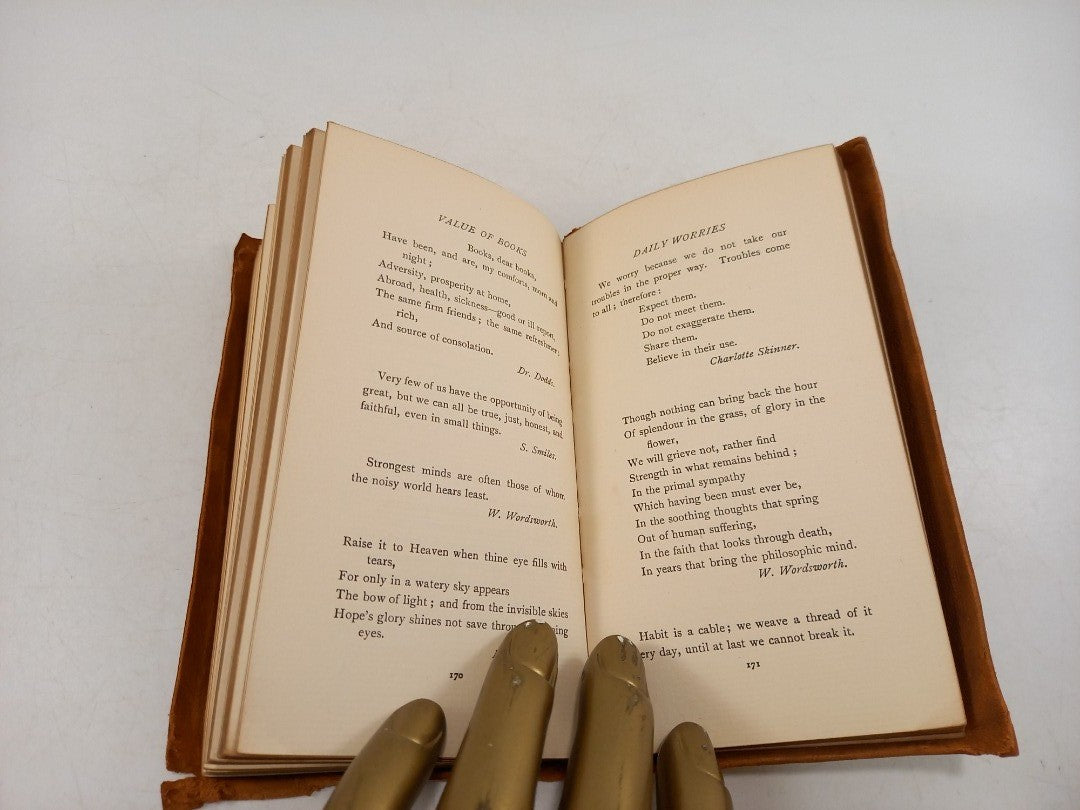 VALUE OF BOOKS
Books, dear books,
Have been, and are, my comforts, morn and
night;
Adversity, prosperity at home,
Abroad, health, sickness—good or ill report,
The same firm friends; the same refreshment
rich,
And source of consolation.
Dr. Dodd.
Very few of us have the opportunity of being
great, but we can all be true, just, honest, and
faithful, even in small things.
S. Smiles.
Strongest minds are often those of whom
the noisy world hears least.
W. Wordsworth.
Raise it to Heaven when thine eye fills with
tears,
For only in a watery sky appears
The bow of light; and from the invisible skies
Hope's glory shines not save
eyes.
170
DAILY WORRIES
We worry because we do not take our
troubles in the proper way. Troubles come
to all; therefore:
Expect them.
Do not meet them.
Do not exaggerate them.
Share them.
Believe in their use.
Charlotte Skinner.
Though nothing can bring back the hour
Of splendour in the grass, of glory in the
flower,
We will grieve not, rather find
Strength in what remains behind;
In the primal sympathy
Which having been must ever be,
In the soothing thoughts that spring
Out of human suffering,
In the faith that looks through death,
In years that bring the philosophic mind.
W. Wordsworth.
Habit is a cable; we weave a thread of it
day, until at last we cannot break it.
171